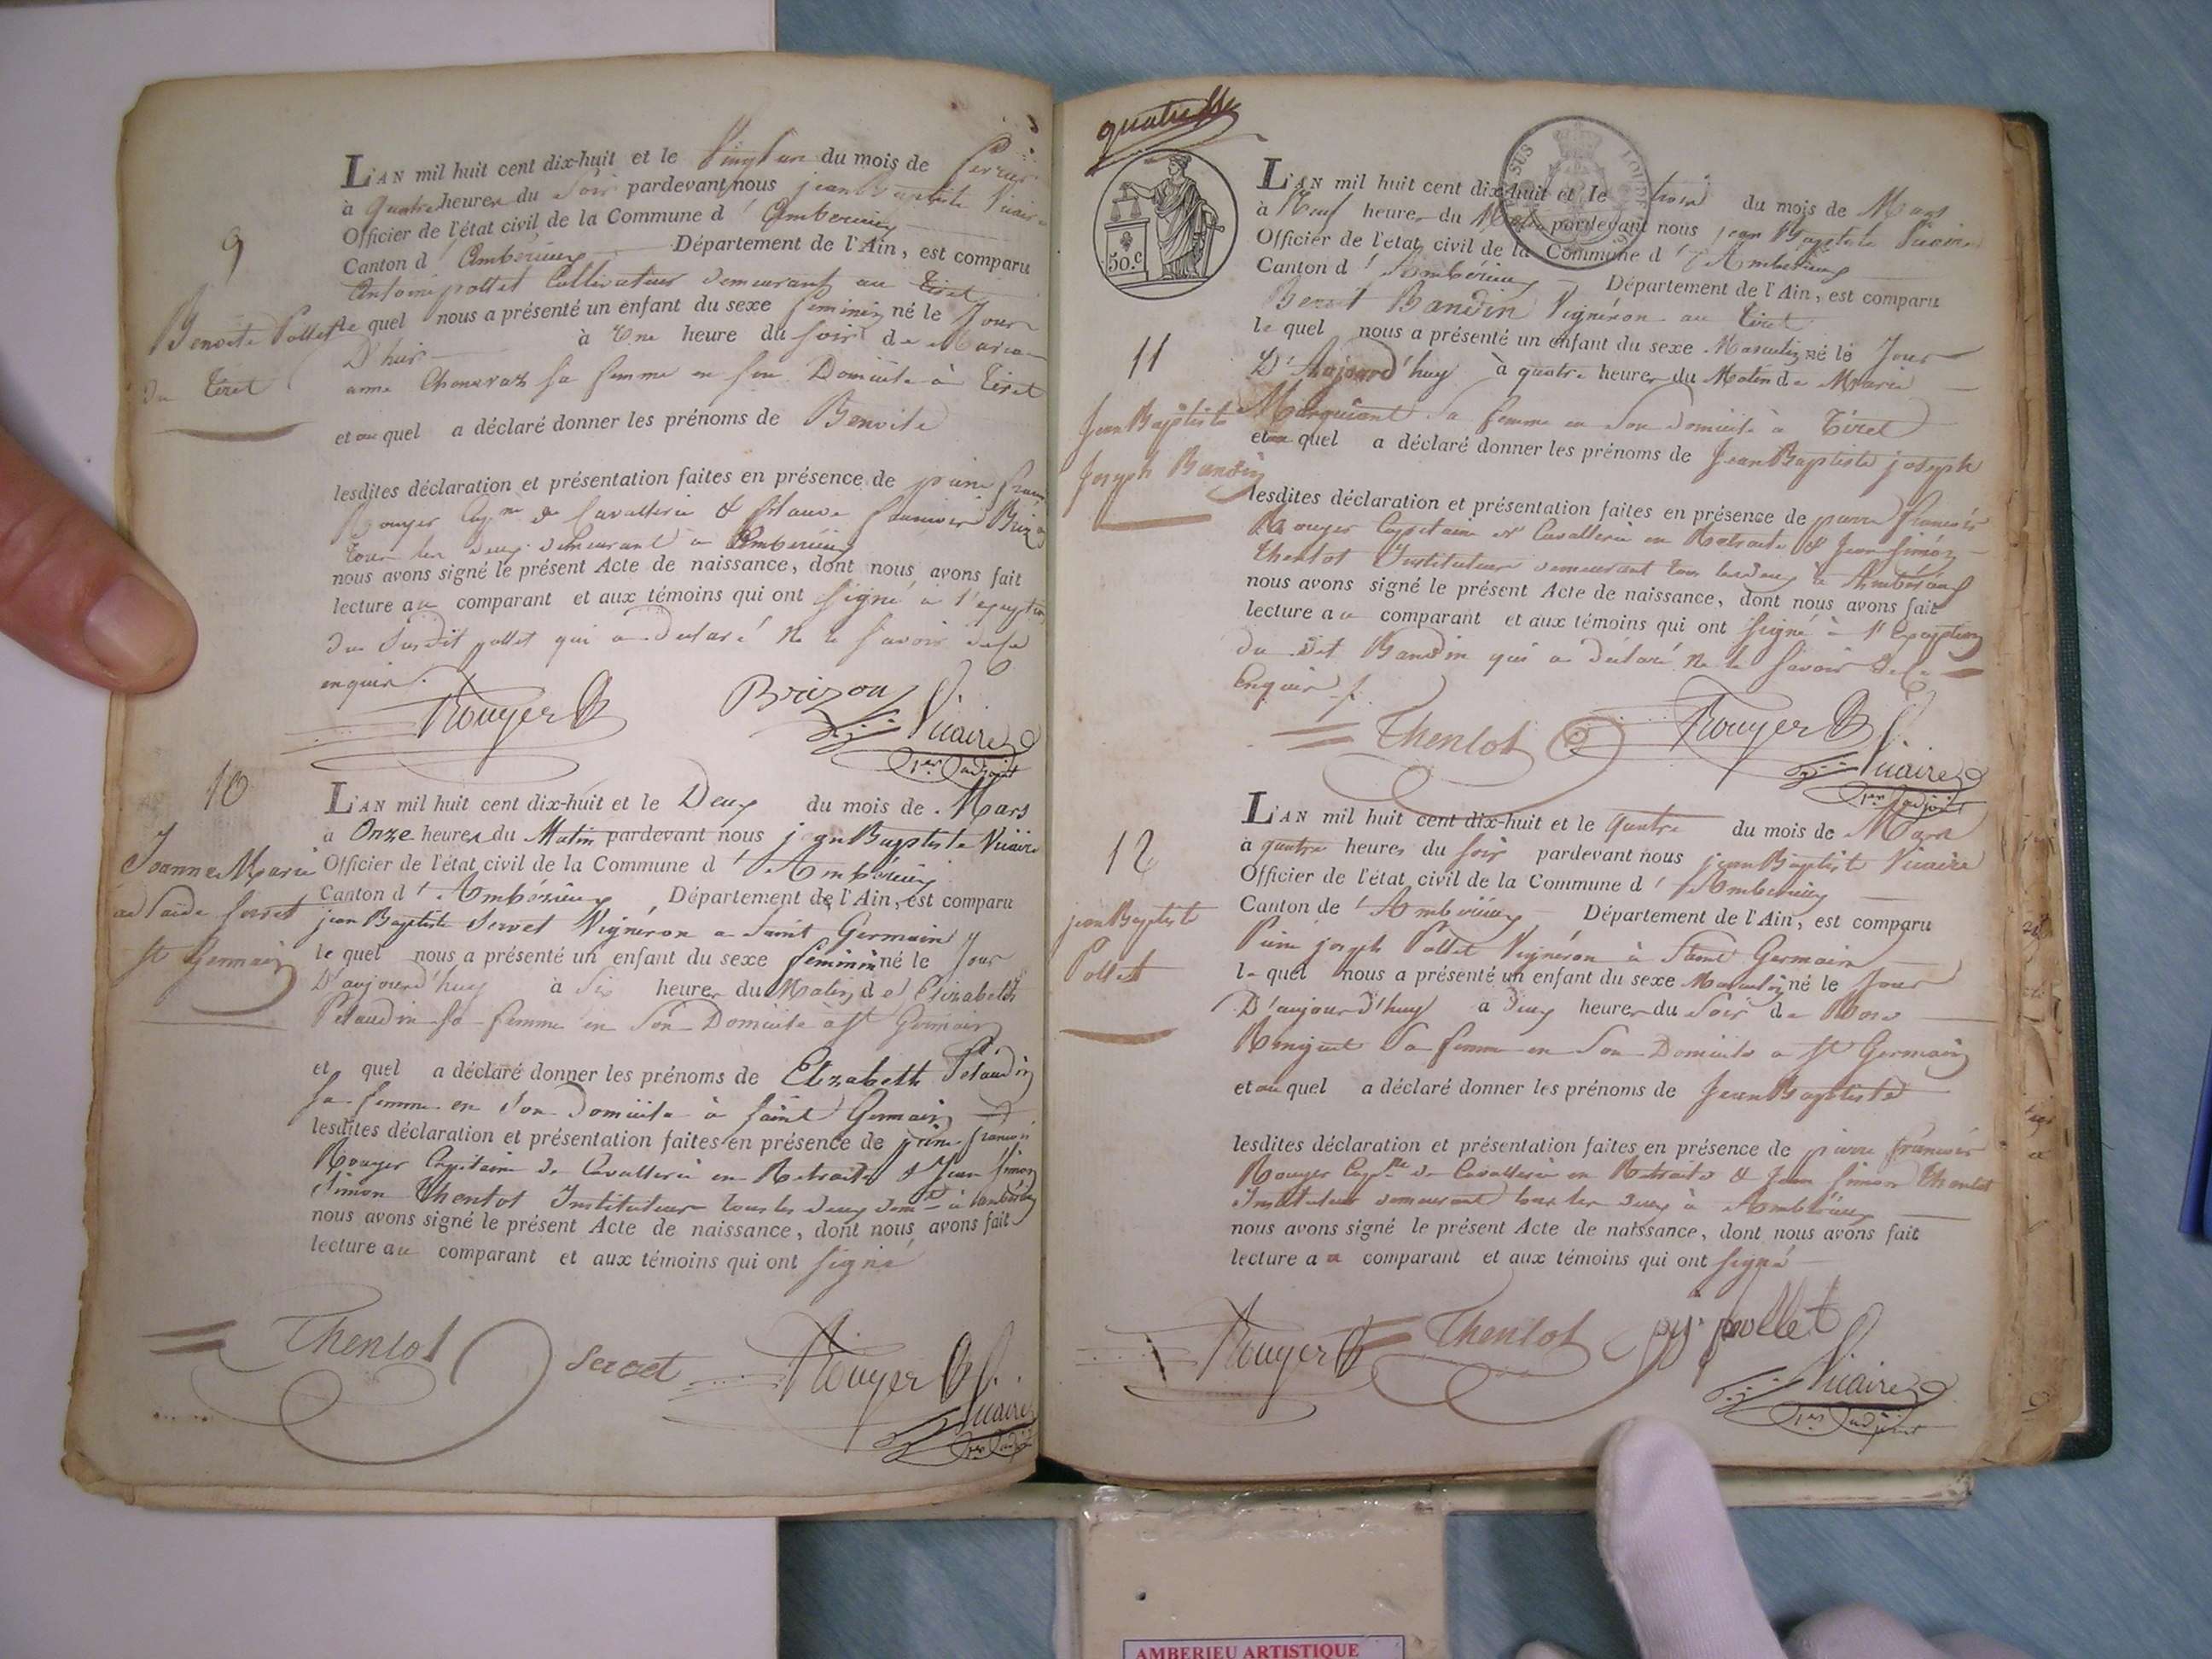 L'AN mil huit cent dix-huit et le Vingt un du mois de fevrier
à quatre heures du Soir pardevant nous jean Baptiste Vicaire
Officier de l'état civil de la Commune d' Amberieux
Canton d' Amberieux Département de l'Ain, est comparu
Antoine pollet Cultivateur demeurant au Tiret
9
Benoite Pollet
du Tiret
le quel nous a présenté un enfant du sexe feminin né le Jour
D'hier à Une heure du soir de Maria
anne sa femme en son Domicile à Tiret
et au quel a déclaré donner les prénoms de Benoite
lesdites déclaration et présentation faites en présence de pierre
Rouyer Capne de Cavallerie &
tous les deux demeurant a Amberieux
nous avons signé le présent Acte de naissance, dont nous avons fait
lecture au comparant et aux témoins qui ont signé a l'exeption
du Susdit pollet qui a declaré ne le savoir de ce
enquis.
Rouyer Brizon Vicaire
1er adjoint
10
Jeanne Marie
adelaide servet
st Germain
L'AN mil huit cent dix-huit et le Deux du mois de Mars
à Onze heures du Matin pardevant nous jean Baptiste Vicaire
Officier de l'état civil de la Commune d' Ambérieux
Canton d' Ambérieux Département de l'Ain, est comparu
jean Baptiste Servet Vignéron a Saint Germain
le quel nous a présenté un enfant du sexe féminin né le Jour
D'aujourd'huy à Six heures du Matin de Elizabeth
Petaudin sa femme en Son Domicile a st Germain
et quel a déclaré donner les prénoms de Elizabeth Petaudin
sa femme en Son domicile à saint Germain
lesdites déclaration et présentation faites en présence de pierre francois
Rouyer Capitaine de Cavallerie en Retraite & Jean simon
simon Thentot Instituteur tous les deux demt à ambérieux
nous avons signé le présent Acte de naissance, dont nous avons fait
lecture au comparant et aux témoins qui ont signé
Thentot servet Rouyer Vicaire
1er adjoint
50.c
L'AN mil huit cent dix-huit et le trois du mois de Mars
à Neuf heures du Matin pardevant nous jean Baptiste Vicaire
Officier de l'etat civil de la Commune d' Amberieux
Canton d' Ambérieux Département de l'Ain, est comparu
Benoit Bandin Vignéron au Tiret
11
Jean Baptiste
Joseph Bandin
le quel nous a présenté un enfant du sexe Masculin né le Jour
D'Aujourd'huy à quatre heures du Matin de Marie
sa femme en Son domicile à Tiret
et au quel a déclaré donner les prénoms de Jean Baptiste joseph
lesdites déclaration et présentation faites en présence de pierre francois
Rouyer Capitaine de Cavallerie en Retraite & Jean simon
Thentot Instituteur demeurant tous les deux à Ambérieux
nous avons signé le présent Acte de naissance, dont nous avons fait
lecture au comparant et aux témoins qui ont signé à l'exeption
du dit Bandin qui a déclaré ne le savoir de ce
Enquis
Thentot Rouyer Vicaire
1er adjoint
12
jean Baptiste
Pollet
L'AN mil huit cent dix-huit et le quatre du mois de Mars
à quatre heures du soir pardevant nous jean Baptiste Vicaire
Officier de l'état civil de la Commune d' Amberieux
Canton de Ambérieux Département de l'Ain, est comparu
Pierre joseph Pollet Vignéron à Saint Germain
le quel nous a présenté un enfant du sexe Masculin né le Jour
D'aujourd'huy a Deux heures du Soir de Rose
sa femme en Son Domicile a st Germain
et au quel a déclaré donner les prénoms de Jean Baptiste
lesdites déclaration et présentation faites en présence de pierre francois
Rouyer Capne de Cavallerie en Retraite & Jean simon Thentot
Instituteur demeurant tous les deux à Ambérieux
nous avons signé le présent Acte de naissance, dont nous avons fait
lecture au comparant et aux témoins qui ont signé
Rouyer Thentot pj. pollet Vicaire
1er adjoint
AMBERIEU ARTISTIQUE